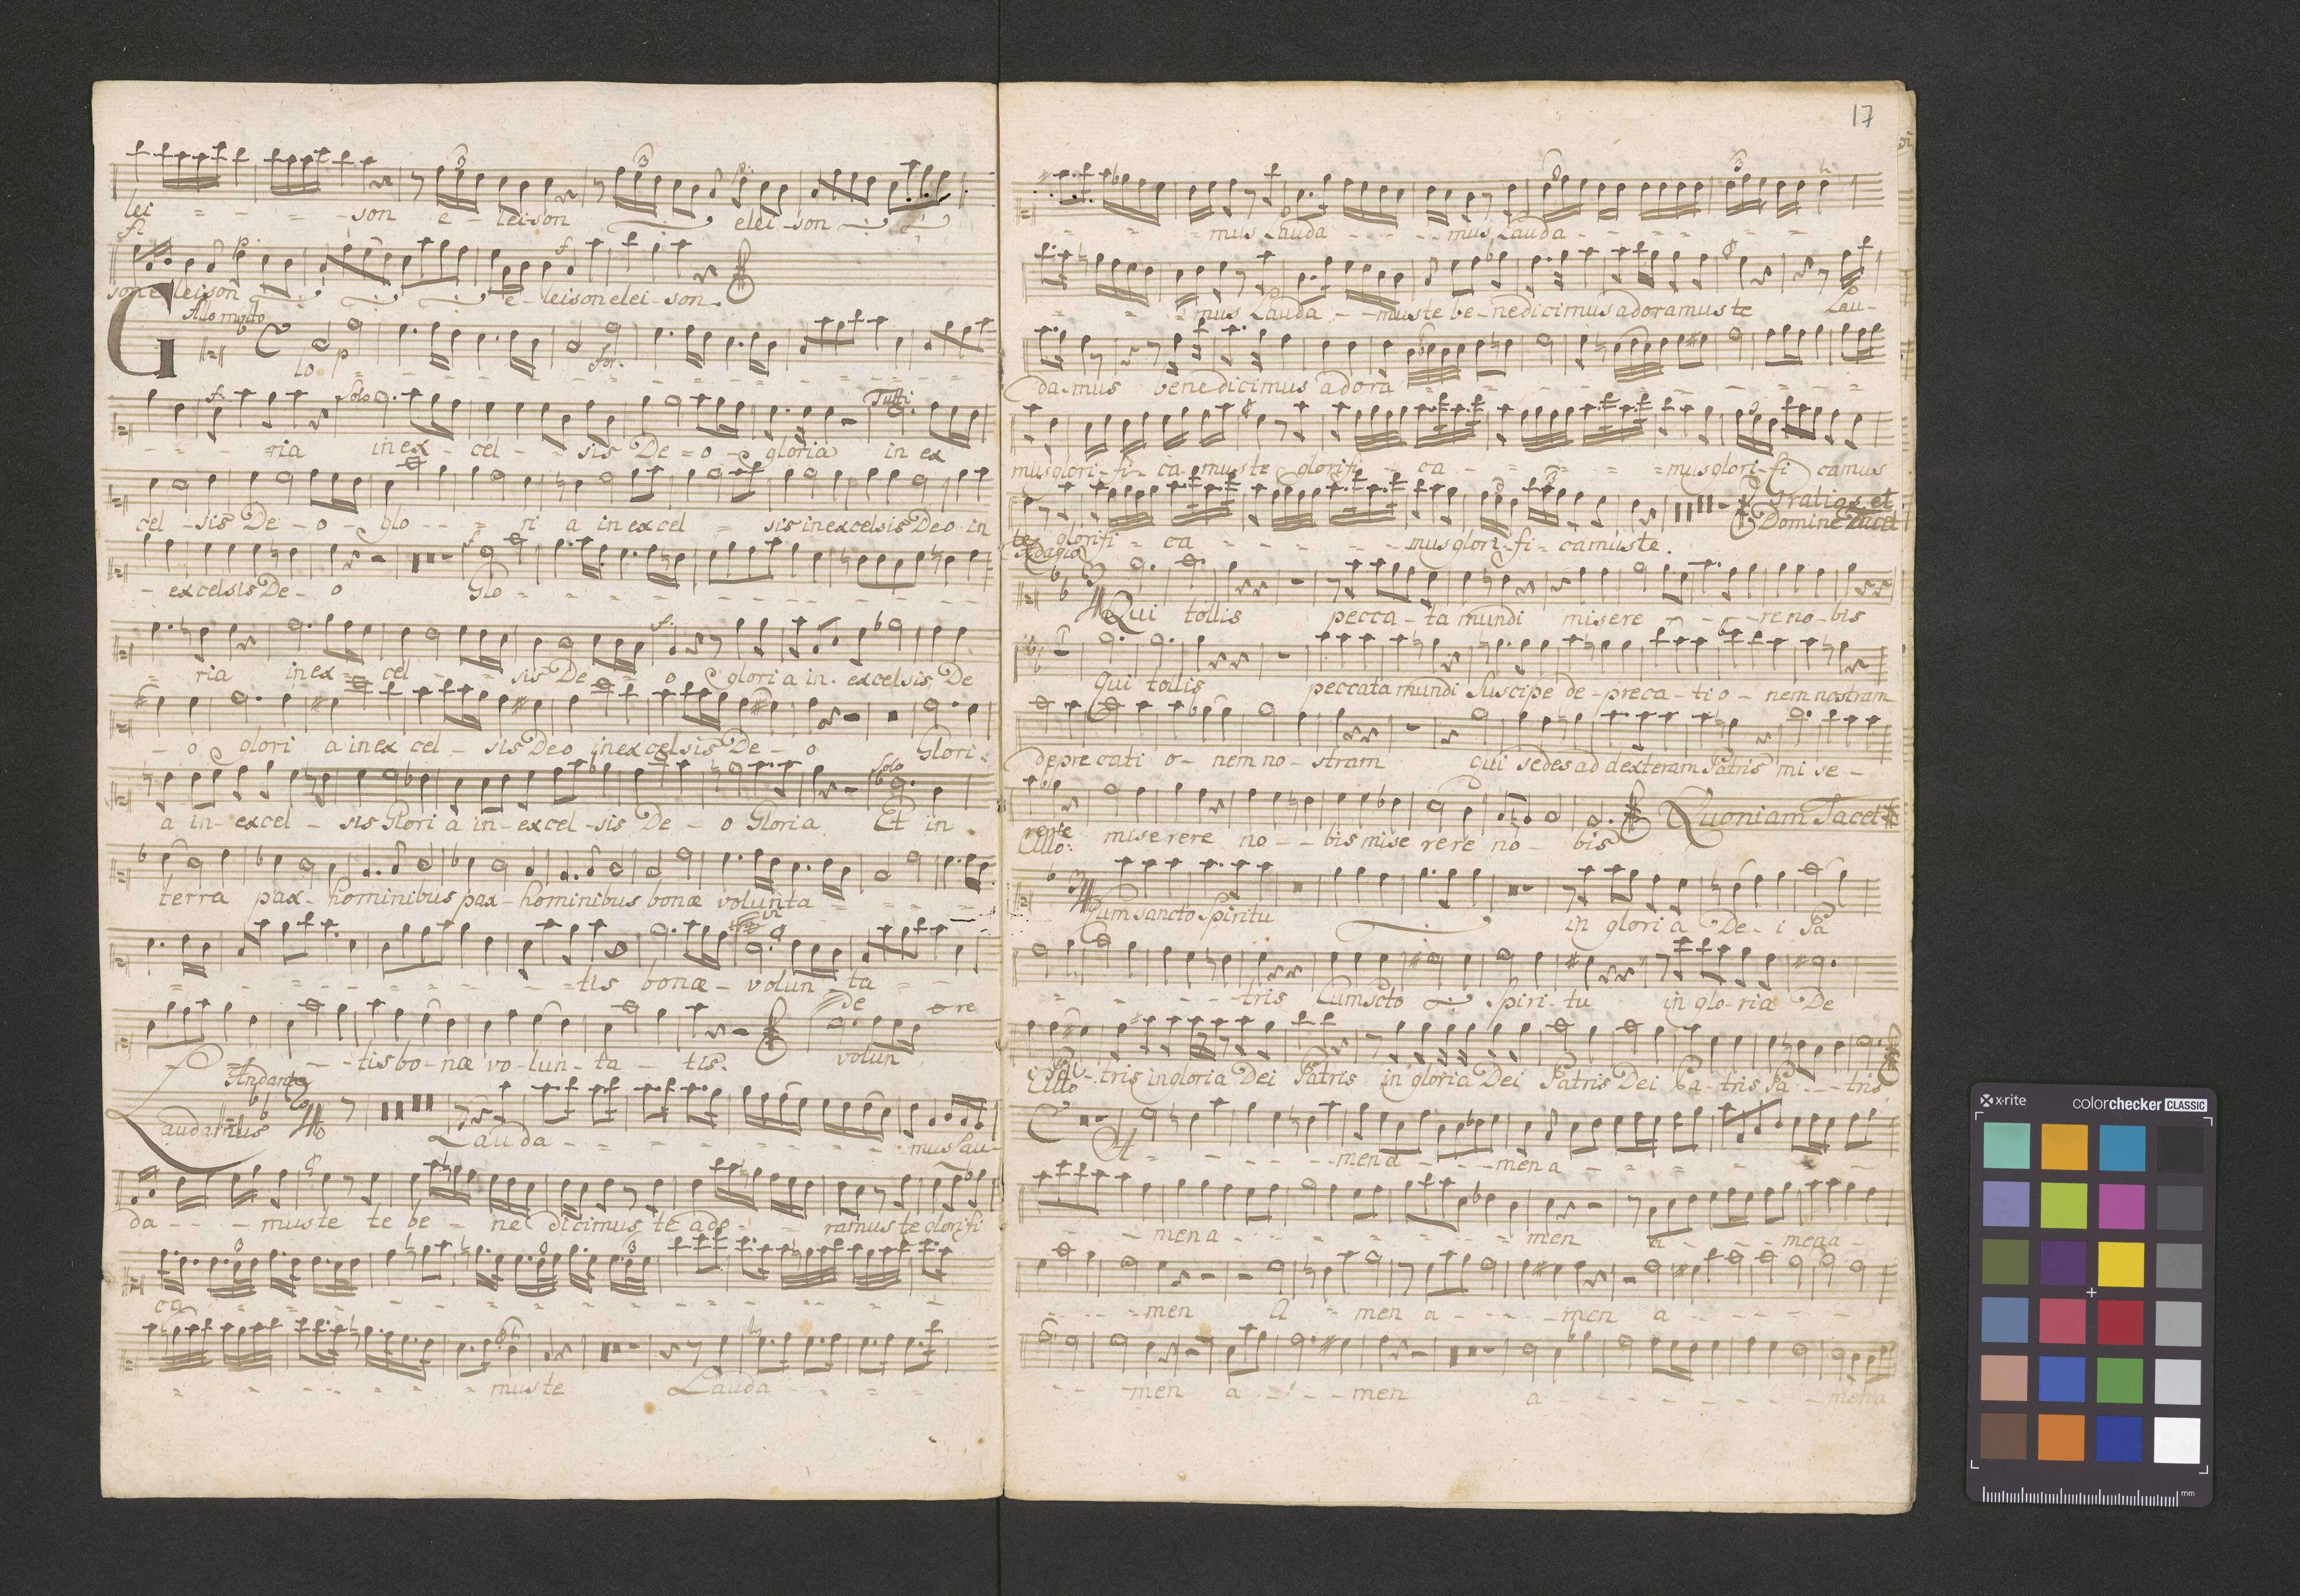 lei - - - - son e - lei-son elei - son
f:
son e leison e - leison elei - son.
Allo molto
Glo p - - - for. - - - - - - -
f: Solo Tutti
- - - ria in ex - cel - - sis De - o - gloria in ex
cel - sis De - o - glo - - - ri a in excel - sis in excelsis Deo in
- excelsis De - o Glo - - - - - - - -
- ria in ex - cel - - sis De - o gloria in excelsis De
- o glori a in ex cel - sis Deo in excelsis De - o Glori -
Solo
a in - excel - sis Glori a in - excel - sis De - o Gloria Et in
terra pax - hominibus pax - hominibus bonæ volunta - - - -
- - - - - - - - - tis bonæ - volun - ta - -
de
- - - - tis bo - næ vo - lun - ta - tis. volun
Andante
Laudamus 4 Lauda - - - - - - - - mus lau -
da - - - mus te te be - ne dicimus te ado - - ramus te glorifi
ca - - - - - - - - - - - -
- - - - - - - mus te Lauda - - - -
17
- - - mus Lauda - - - mus Lauda - - - - - -
- - - mus Lauda - - mus te be - nedicimus adoramus te Lau -
da - mus benedicimus adora - - - - - - - -
mus glori - fi - ca - mus te glorifi - ca - - - - - mus glori - fi camus
Gratias et
Domine Tacet
te glorifi - ca - - - - - - mus glori - fi - camus te.
Adagio
3
4 Qui tollis pecca - ta mundi misere - - - re no - bis
Qui tollis peccata mundi Suscipe de - preca - ti o - nem nostram
depre cati o - nem no - stram qui sedes ad dexteram Patris mi se -
Quoniam Tacet
rere mise rere no - - bis mise rere no - bis
Allo:
3
4 Cum sancto Spiritu in glori a De - i Pa
- - - - tris Cum Scto Spiri - tu in glo - ria De
i Pa - tris in gloria Dei Patris in gloria Dei Patris Dei Pa - tris Pa - - - tris
Allo
A - - - - - men a - - - men a - - - - -
- - - men a - - - - - - - men a - - - men a -
- - - - men A - men a - - - - men a - - - - -
- - - men a - - - men a - - - - - - - - men a